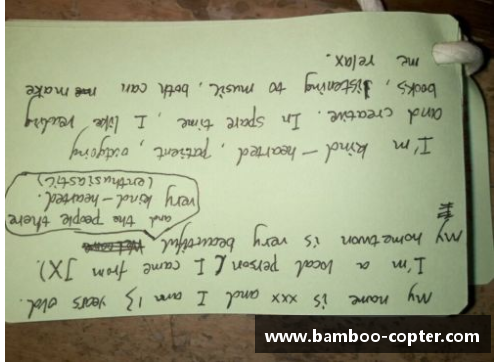 my name is xxx and I am 13 years old.
I'm a local person (I came from JX).
my hometwon is very beautiful
and the people there
very kind-hearted.
(enthusiastic)
I'm kind-hearted, patient, outgoing
and creative. In spare time, I like reading
books, listening to music, both can make
me relax.
www.bamboo-copter.com